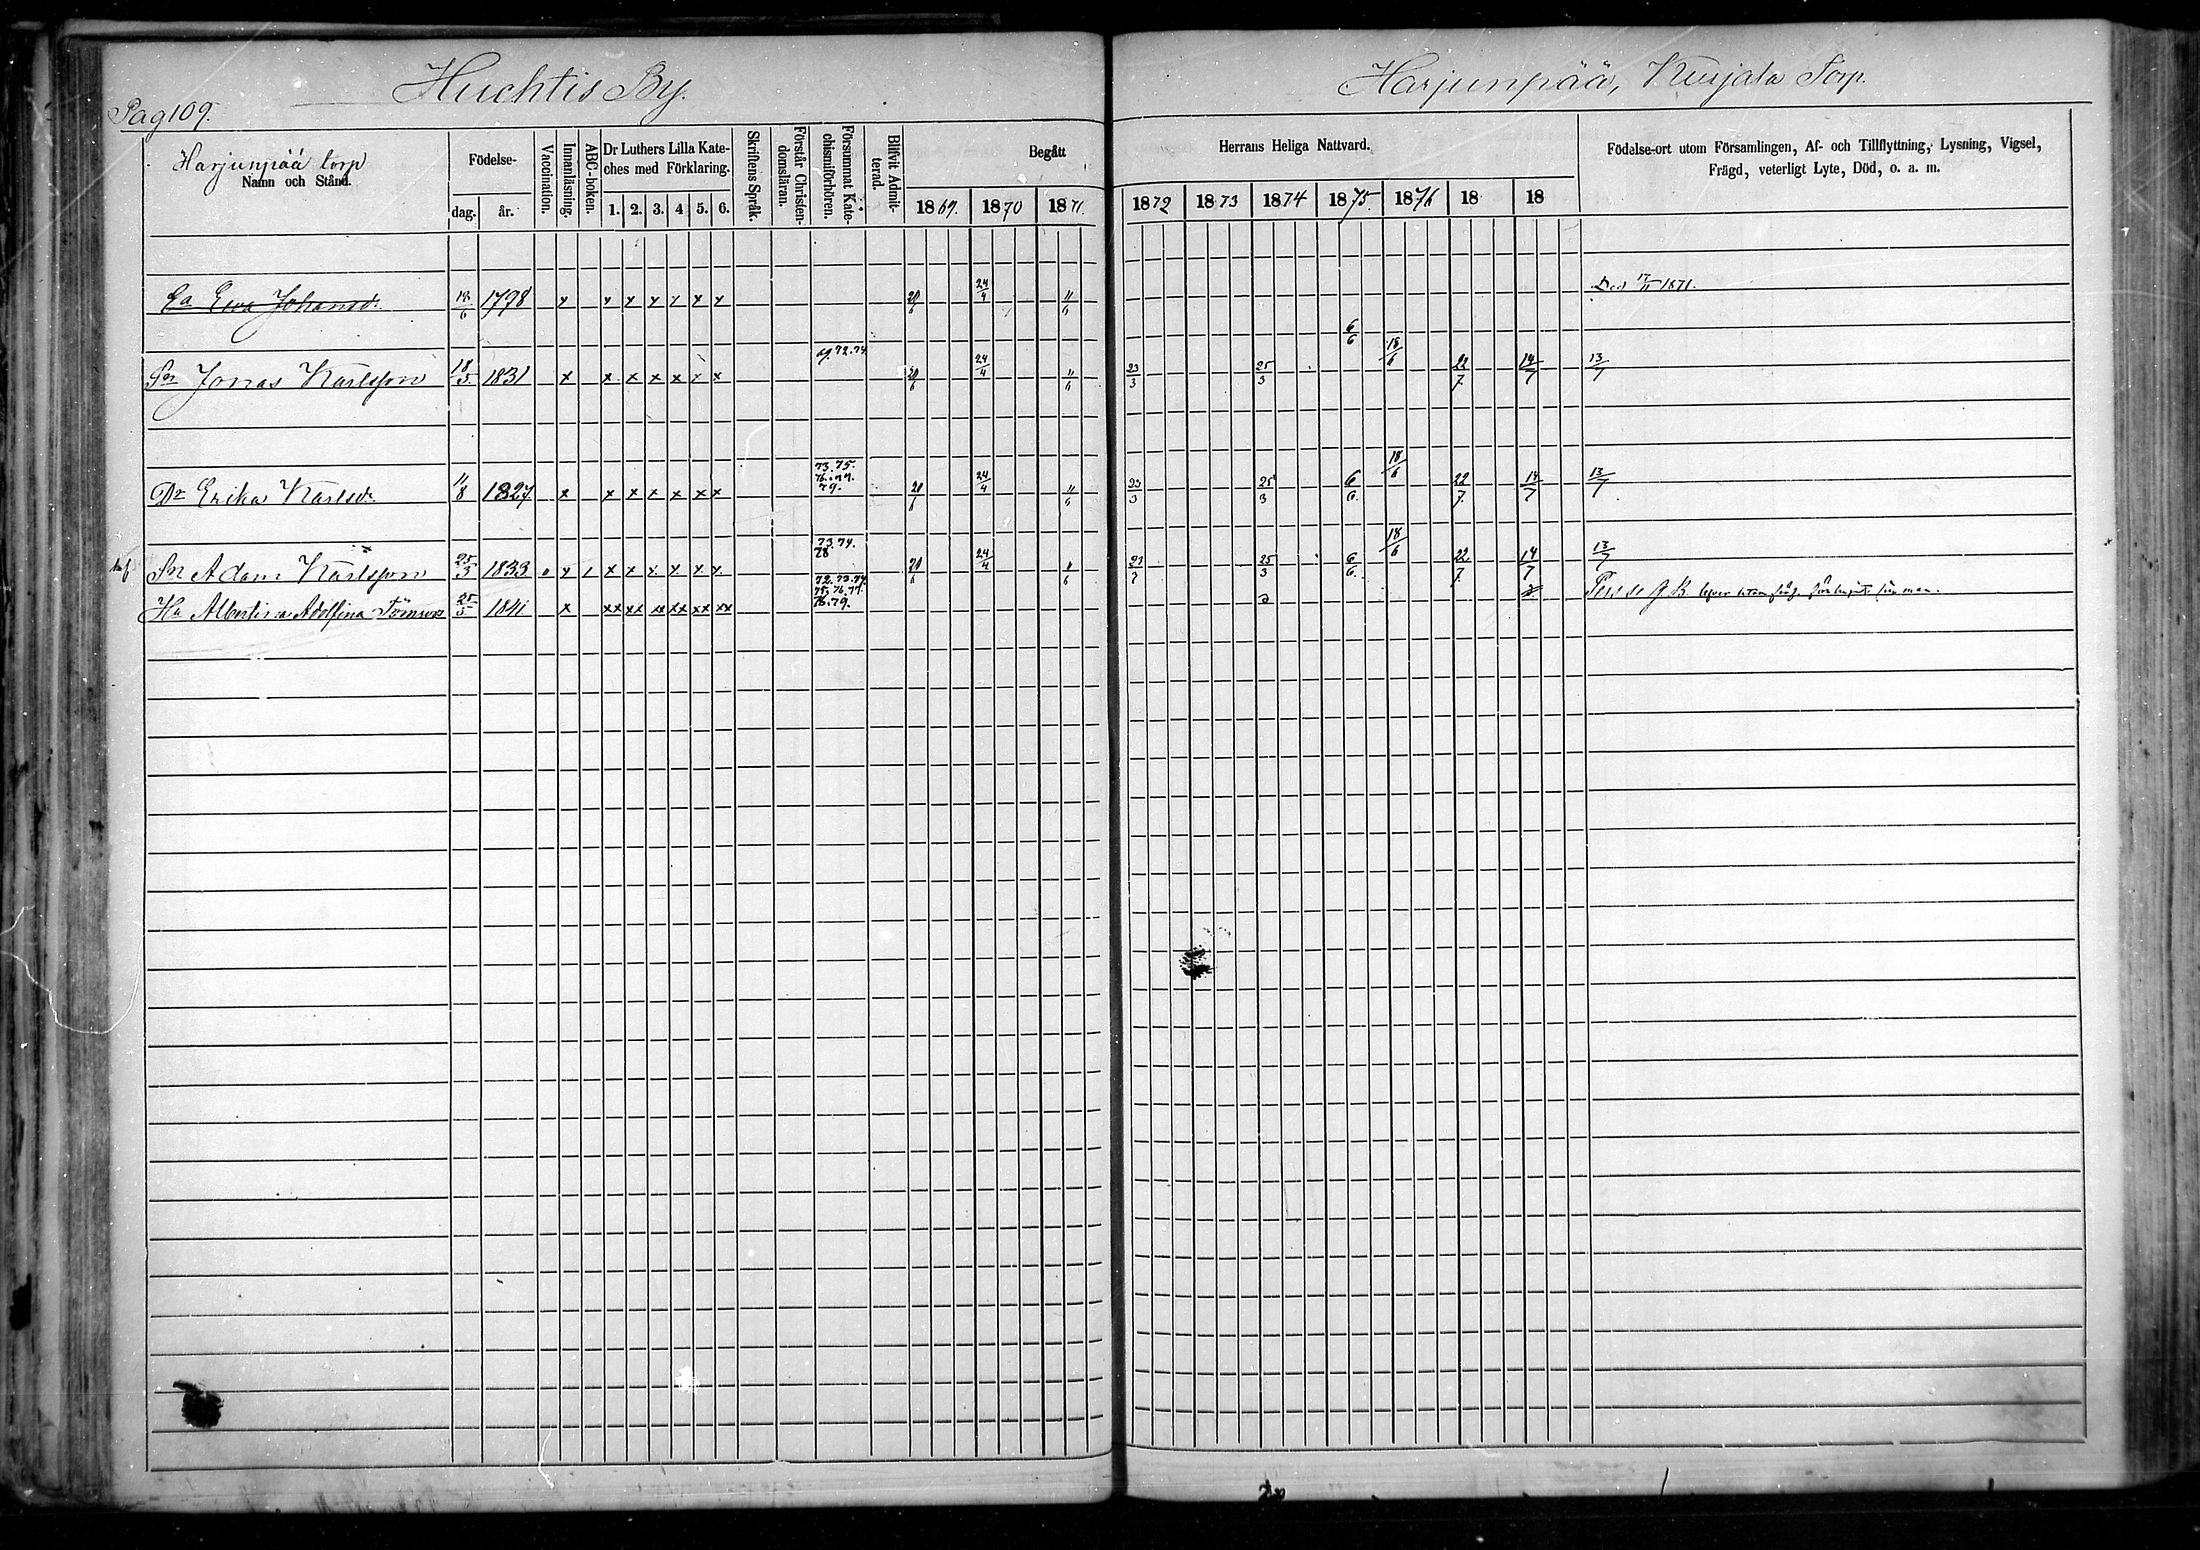 Huchtis By.
Harjunpää, Kurjala Torp.
Pag 109.
Harjunpää torp
Namn och Stånd.
Födelse-
dag. år.
Vaccination.
Innanläsning.
ABC-boken.
Dr Luthers Lilla Kate-
ches med Förklaring.
1. 2. 3. 4 5. 6.
Skriftens Språk.
Förstår Christen-
domsläran.
Försummat Kate-
chismiförhören.
Blifvit Admit-
terad.
Begått
1869. 1870 1871.
Herrans Heliga Nattvard.
1872 1873 1874 1875. 1876 18 18
Födelse-ort utom Församlingen, Af- och Tillflyttning, Lysning, Vigsel,
Frägd, veterligt Lyte, Död, o. a. m.
Ea Eva Johansd. 18/6 1798 x x x x x x x 20/6 24/4 11/6 Död 17/11 1871.
72.74 6/6 18/6
Sn Jonas Karlsson 18/3 1831 x x x x x x x 20/6 24/4 11/6 23/3 25/3 22/7 14/7 13/7
73.75.
76.77.
79.
18/6
Dr Erika Karlsd. 11/8 1827 x x x x x x x 20/6 24/4 11/6 23/3 25/3 6/6. 22/7. 14/7 13/7
73.74.
78
18/6
Sn Adam Karlsson 25/3 1833 x x x x x x x 20/6 24/4 25/3 6/6. 22/7. 14/7 13/7
72.73.74.
75.76.77.
78.79.
Hu Albertina Adolfina 25/5 1841 x xx xx xx xx xx xx